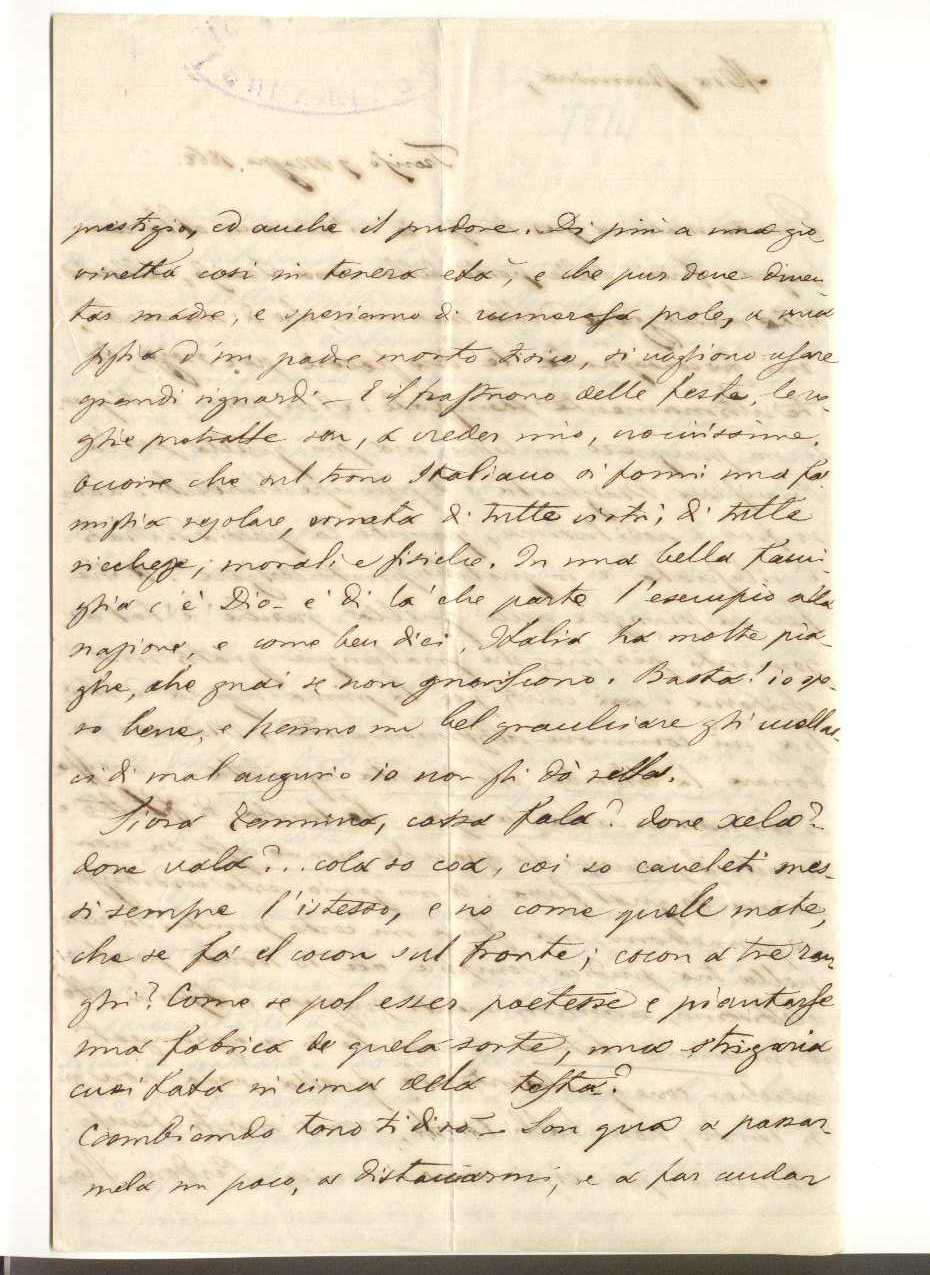 prestigio, ed anche il pudore. Di più a una gio-
vinetta così in tenera età, e che pur deve diven-
tar madre, e speriamo di numerosa prole, a una
figlia d'un padre morto tisico, si vogliono usare
grandi riguardi - E il frastuono delle feste, le ve-
glie protratte son, a creder mio, nocivissime.
occorre che sul trono Italiano si formi una fa-
miglia regolare, ornata di tutte virtù, di tutte
ricchezze, morali e fisiche. In una bella fami-
glia c'è Dio - e di là che parte l'esempio alla
nazione, e come ben dici, Italia ha molte pia-
ghe, che guai se non guariscono. Basta! io spe-
ro bene, e hanno un bel gracchiare gli uccellac-
ci di mal augurio io non gli dò retta.
Siora Erminia, cossa fala? dove xela?
dove vala?... cola so coa, coi so caveleti mes-
si sempre l'istesso, e no come quelle mate,
che se fà el cocon sul fronte; cocon a tre ran-
ghi? Come se pol esser poetesse e piantarse
una fabrica de quela sorte, una strigaria
cusì fata in cima della testa?
Cambiando tono ti dirò - Son qua a passar-
mela un poco, a             , e a far andar